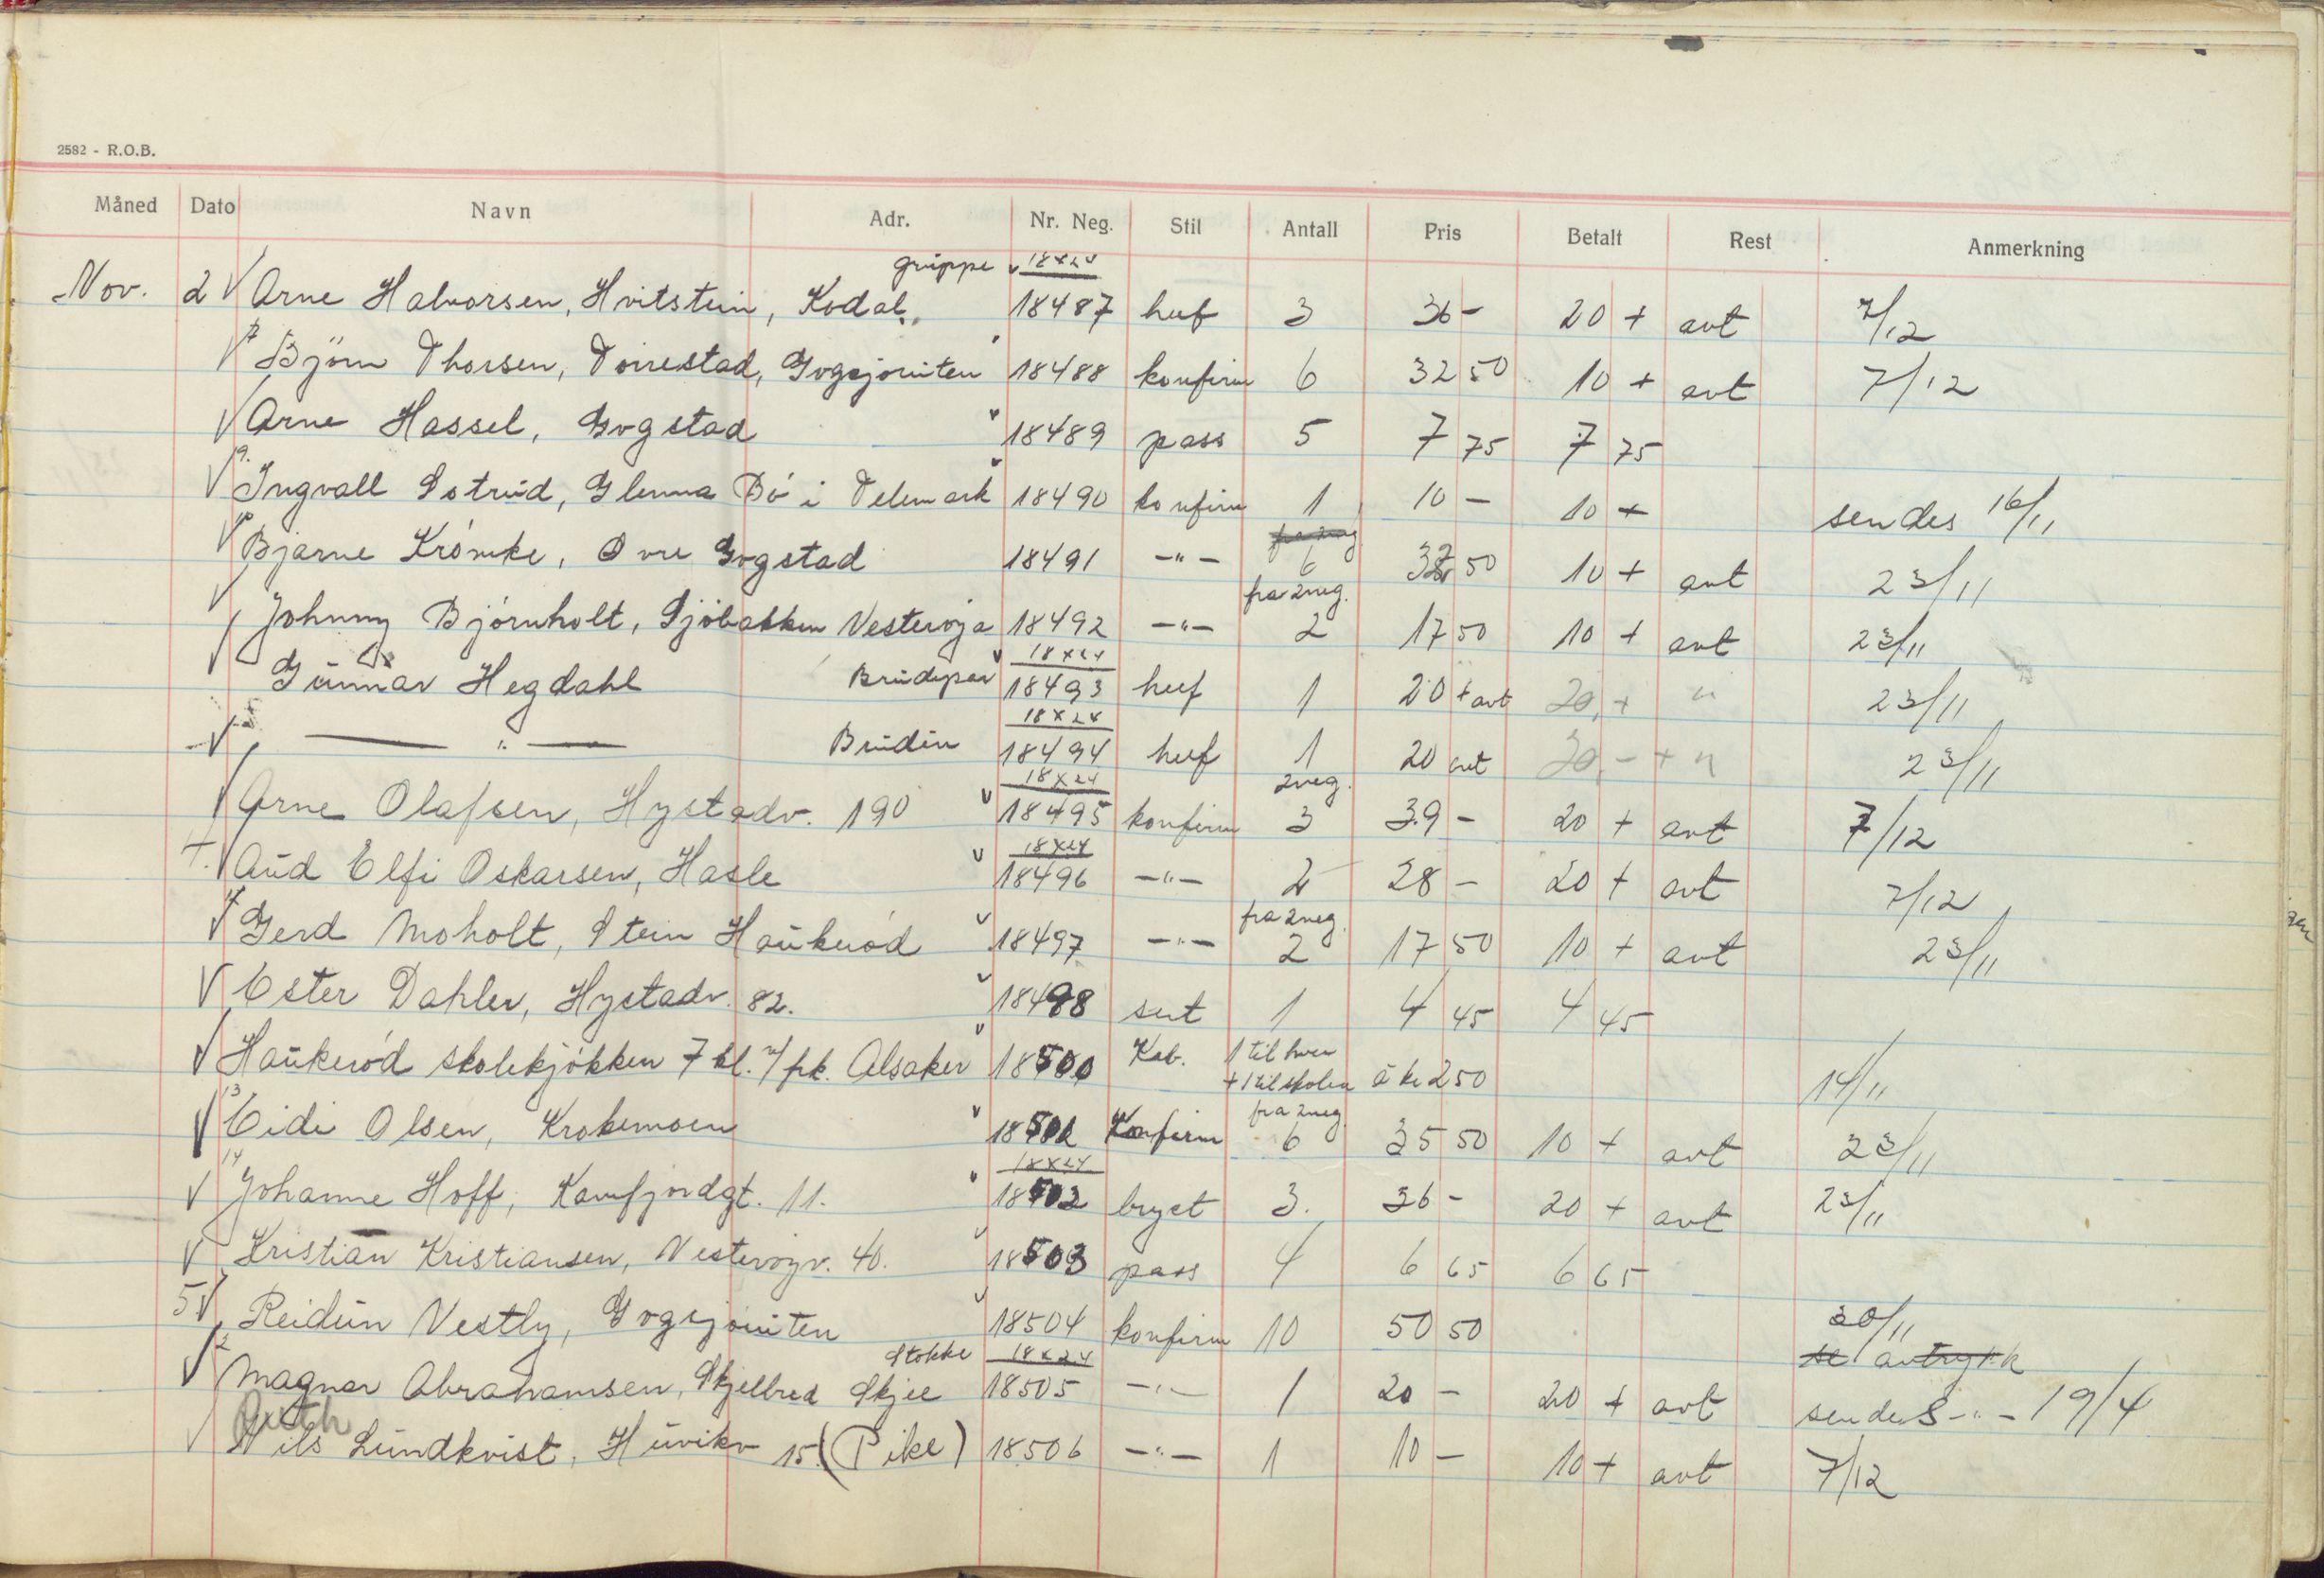 2582 - R.O.B.
Måned Dato Navn Adr. Nr. Neg. Stil Antall Pris Betalt Rest Anmerkning
gruppe 18x24
Nov. 2 Arne Halvorsen, Hvitstein, Kodal. 18487 huf 3 36 - 20 + avt 7/12
Björn Thorsen, Torrestad, Gogsjøruten 18488 konfirm 6 32 50 10 + avt 7/12
Arne Hassel, Gogstad 18489 pass 5 7 75 7 75
Ingvall Sstrud, Glenna Bö i Telemark 18490 konfirm 1 10 - 10 + sendes 16/11
Bjarne Krömke, Ovre Gogstad 18491 -"- 6 50 10 + avt 23/11
fra 2neg.
Johnny Björnholt, Sjöbakken Vesteröja 18492 -"- 2 17 50 10 + avt 23/11
18x24
Gunnar Hegdahl Brudepar 18493 huf 1 20 + avt 20,+ " 23/11
18x24
— " — Bruden 18494 huf 1 20 avt - + " 23/11
18x24 2neg.
Arne Olafsen, Hystadv. 190 18495 konfirm 3 39 - 20 + avt 7/12
18x24
4. Aud Elfi Oskarsen, Hasle 18496 -"- 2 28 - 20 + avt 7/12
fra 2neg.
Gerd Moholt, Stein Haukeröd 18497 -"- 2 17 50 10 + avt 23/11
Ester Dahler, Hystadv. 82. 18498 sert 1 4 45 4 45
Haukeröd skolekjökken 7 kl. v/frk. Alsaker 18500 Kab. 1 til hver
+ 1 til skolen á kr 2 50 14/11
fra 2neg
Eidi Olsen, Krokemoen Konfirm 6 35 50 10 + avt 23/11
18x24
Johanne Hoff, Kamfjordgt. 11. 18502 bryst 3. 36 - 20 + avt 23/11
Kristian Kristiansen, Vesteröyv. 40. 18503 pass 4 6 65 6 65
5 Reidun Vestly, Gogsjøruten 18504 konfirm 10 50 50 30/11
Stokke 18x24 se avtrykk
Magnar Abrahamsen, Skjelbred Skjee 18505 -"- 1 20 - 20 + avt sendes -"- 19/4
Ruth
Nils Lundkvist, Huvikv 15. (Pike) 18506 -"- 1 10 - 10 + avt 7/12